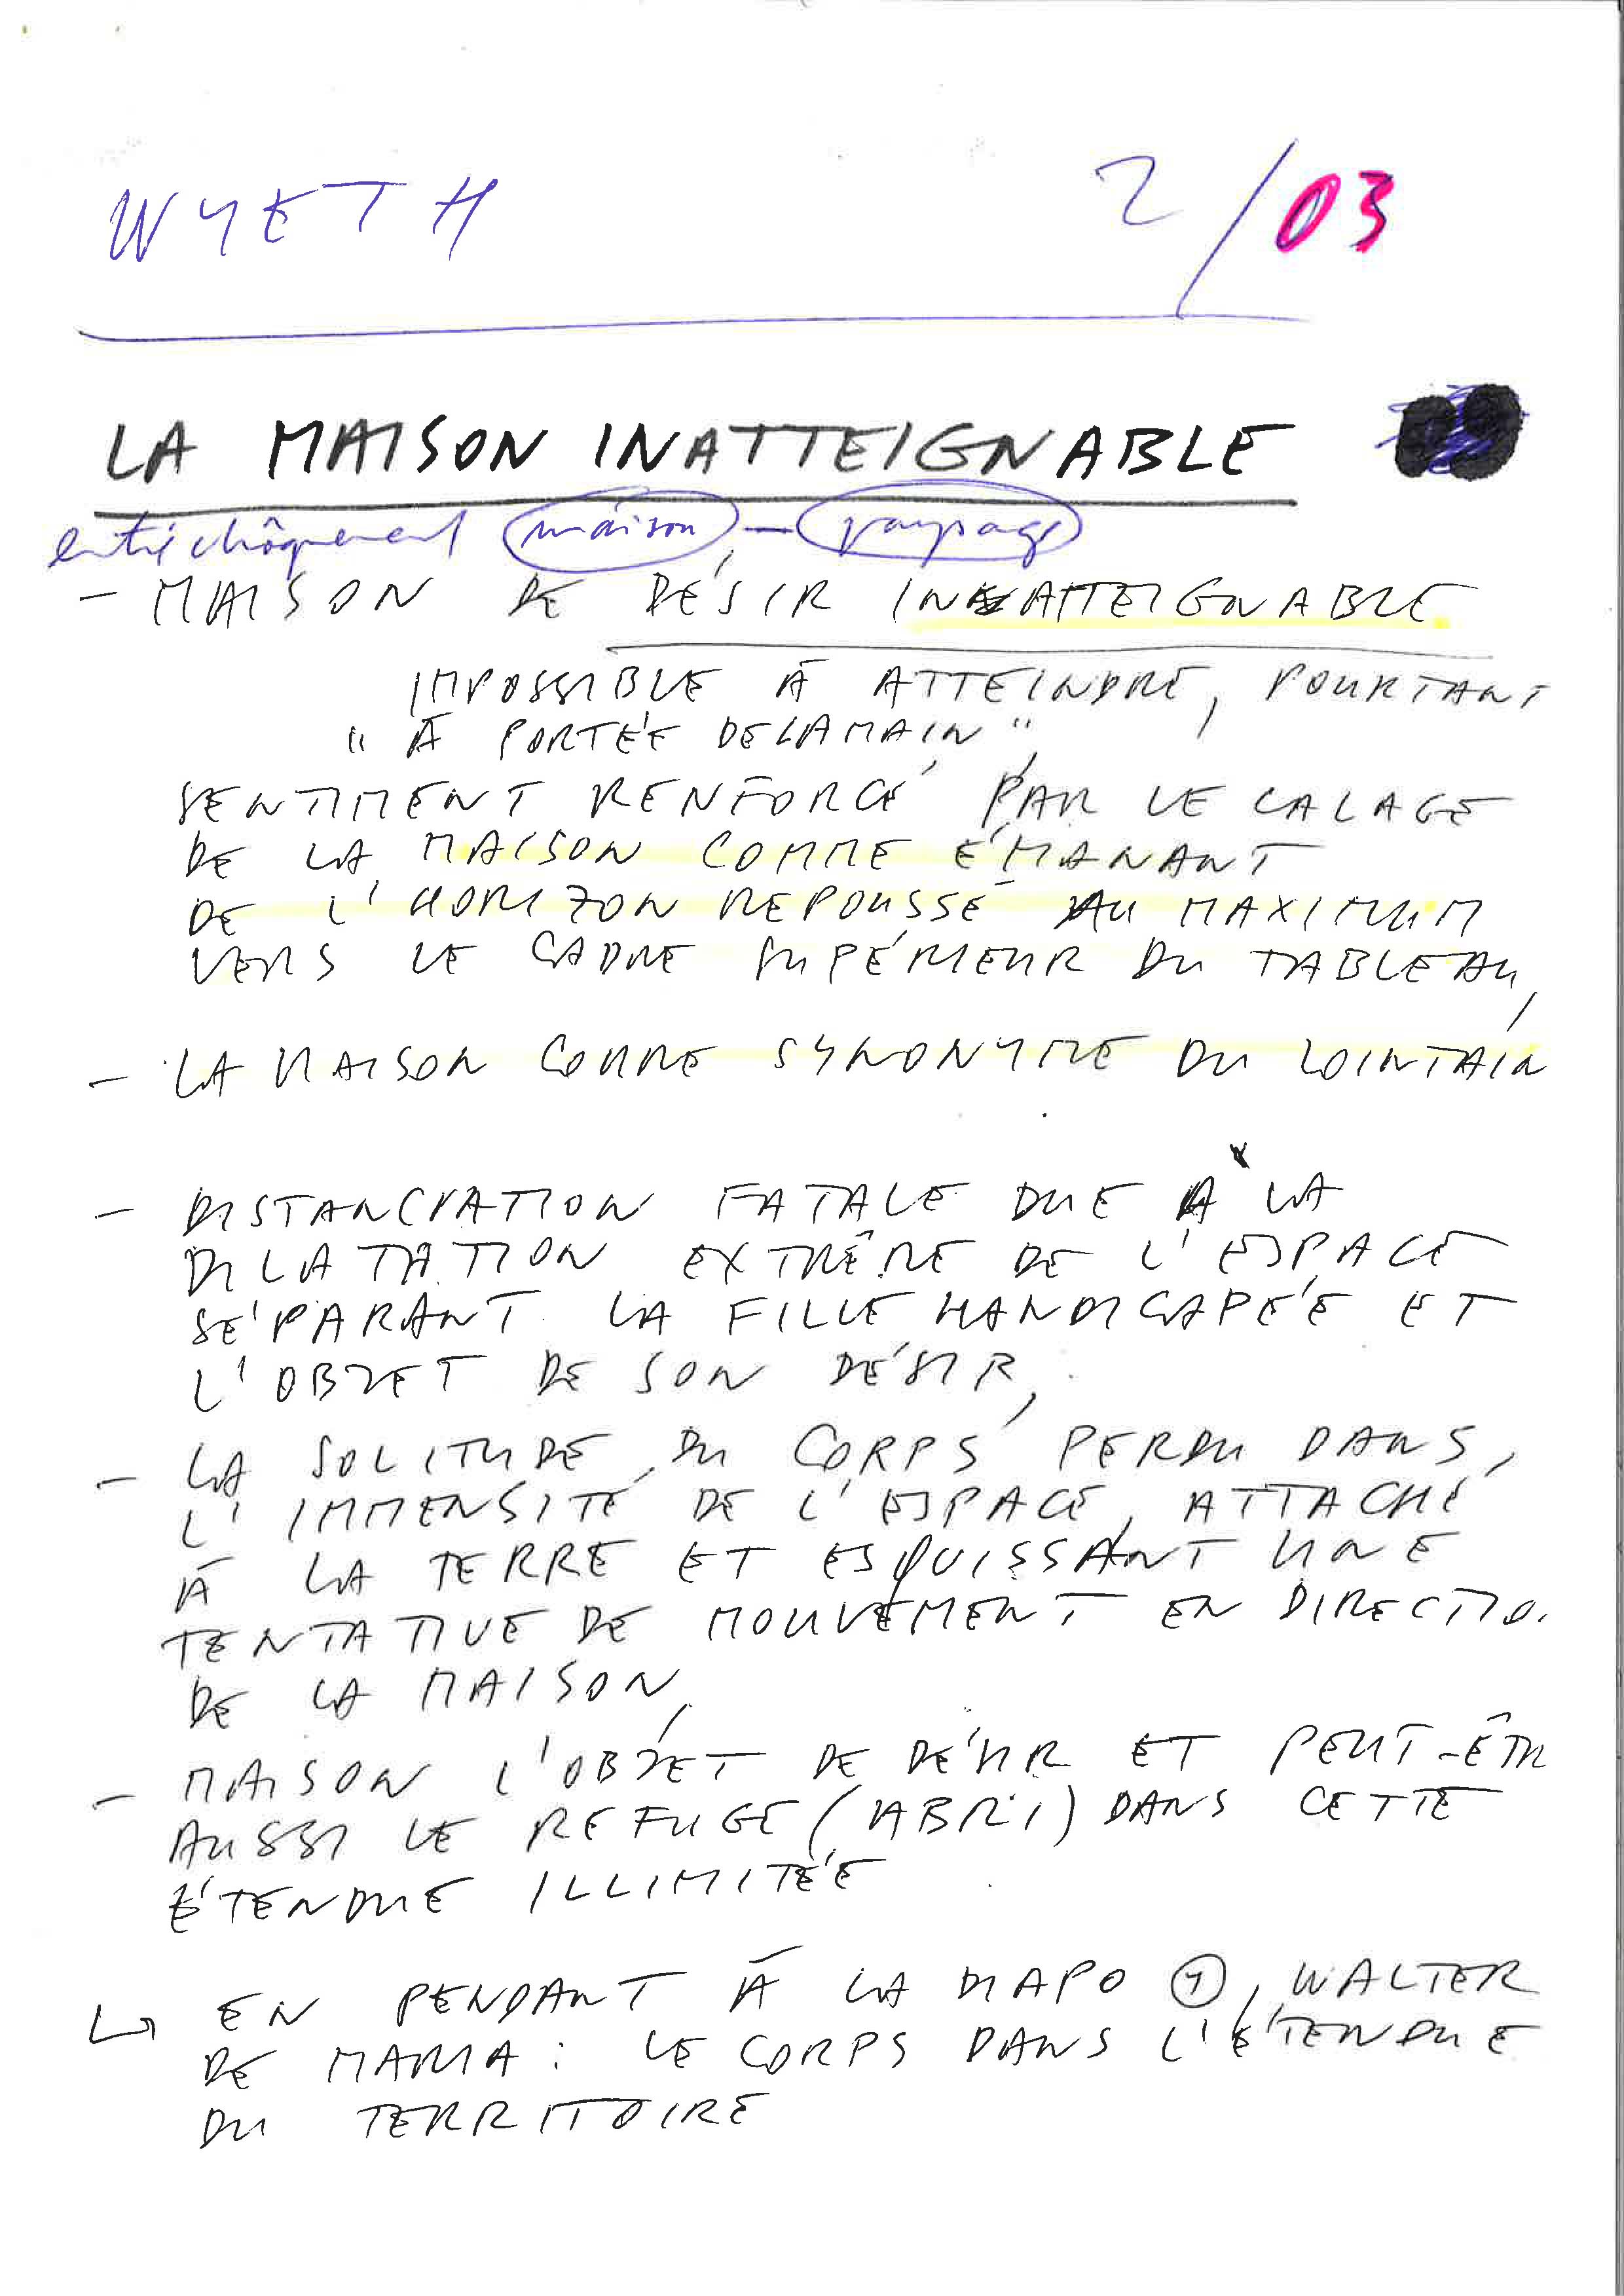 WYETH 2/03
LA MAISON INATTEIGNABLE
entrechôquement maison - paysage
- MAISON DE DÉSIR INATTEIGNABLE
IMPOSSIBLE À ATTEINDRE, POURTANT
"À PORTÉE DE LA MAIN",
SENTIMENT RENFORCÉ PAR LE CALAGE
DE LA MAISON COMME ÉMANANT
DE L'HORIZON REPOUSSÉ AU MAXIMUM
VERS LE CADRE SUPÉRIEUR DU TABLEAU,
- LA MAISON COMME SYNONYME DU LOINTAIN
- DISTANCIATION FATALE DUE À LA
DILATATION EXTRÊME DE L'ESPACE
SÉPARANT LA FILLE HANDICAPÉE ET
L'OBJET DE SON DÉSIR,
- LA SOLITUDE DU CORPS PERDU DANS
L'IMMENSITÉ DE L'ESPACE, ATTACHÉ
À LA TERRE ET ESQUISSANT UNE
TENTATIVE DE MOUVEMENT EN DIRECTIO.
DE LA MAISON,
- MAISON L'OBJET DE DÉSIR ET PEUT-ÊTR
AUSSI LE REFUGE (ABRI) DANS CETTE
ÉTENDUE ILLIMITÉE
↳ EN PENDANT À LA DIAPO 1, WALTER
DE MARIA : LE CORPS DANS L'ÉTENDUE
DU TERRITOIRE